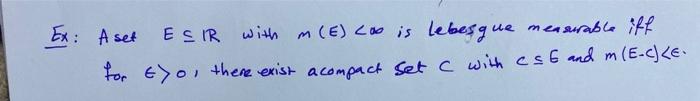 Ex: A set E ⊆ ℝ with m(E) < ∞ is lebesgue measurable iff
for ϵ > 0, there exist a compact set C with C ⊆ E and m(E-C) < ϵ.